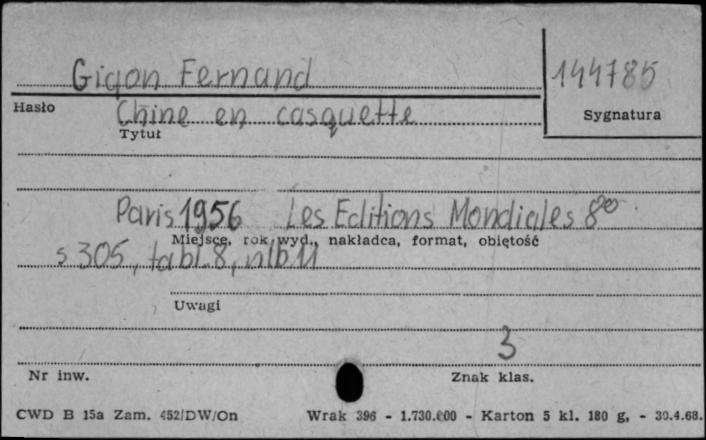 Gigon Fernand
144785
Hasło
Chine en casquette
Sygnatura
Tytuł
Paris 1956 Les Editions Mondiales 8°
Miejsce, rok wyd., nakładca, format, objętość
s 305, tabl. 8, nlb. 11
Uwagi
3
Nr inw.
Znak klas.
CWD B 15a Zam. 452/DW/On Wrak 396 - 1.730.000 - Karton 5 kl. 180 g. - 30.4.68.